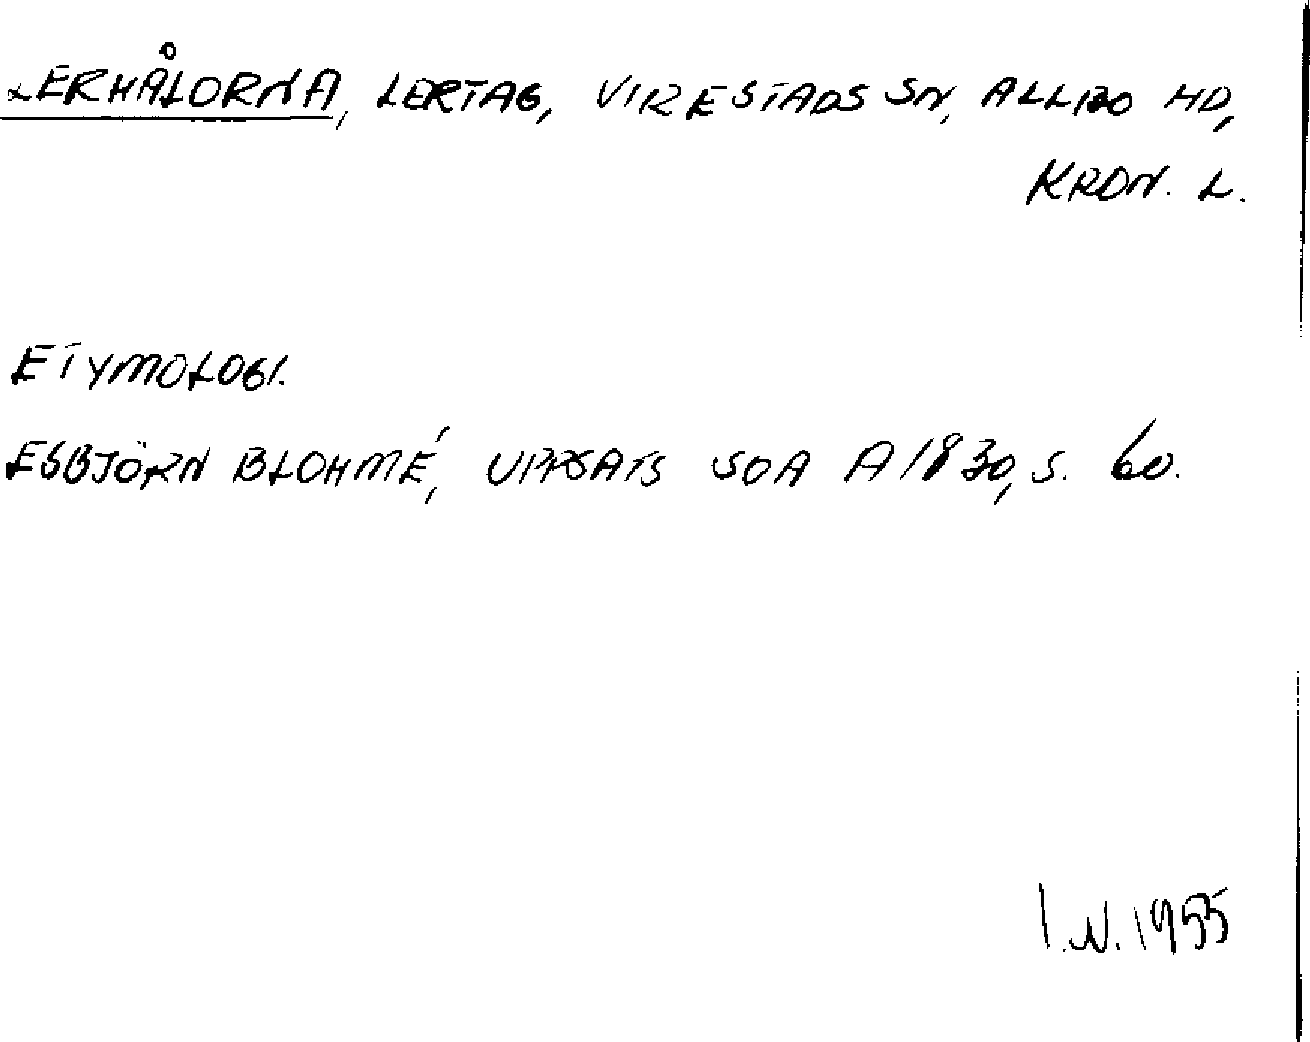 LERHÅLORNA, LERTAG, VIRESTADS SN, ALLBO HD,
KRON. L.
ETYMOLOGI.
ESBJÖRN BLOHMÉ, UPPSATS SOA A1830, S. 60.
I.N. 1955